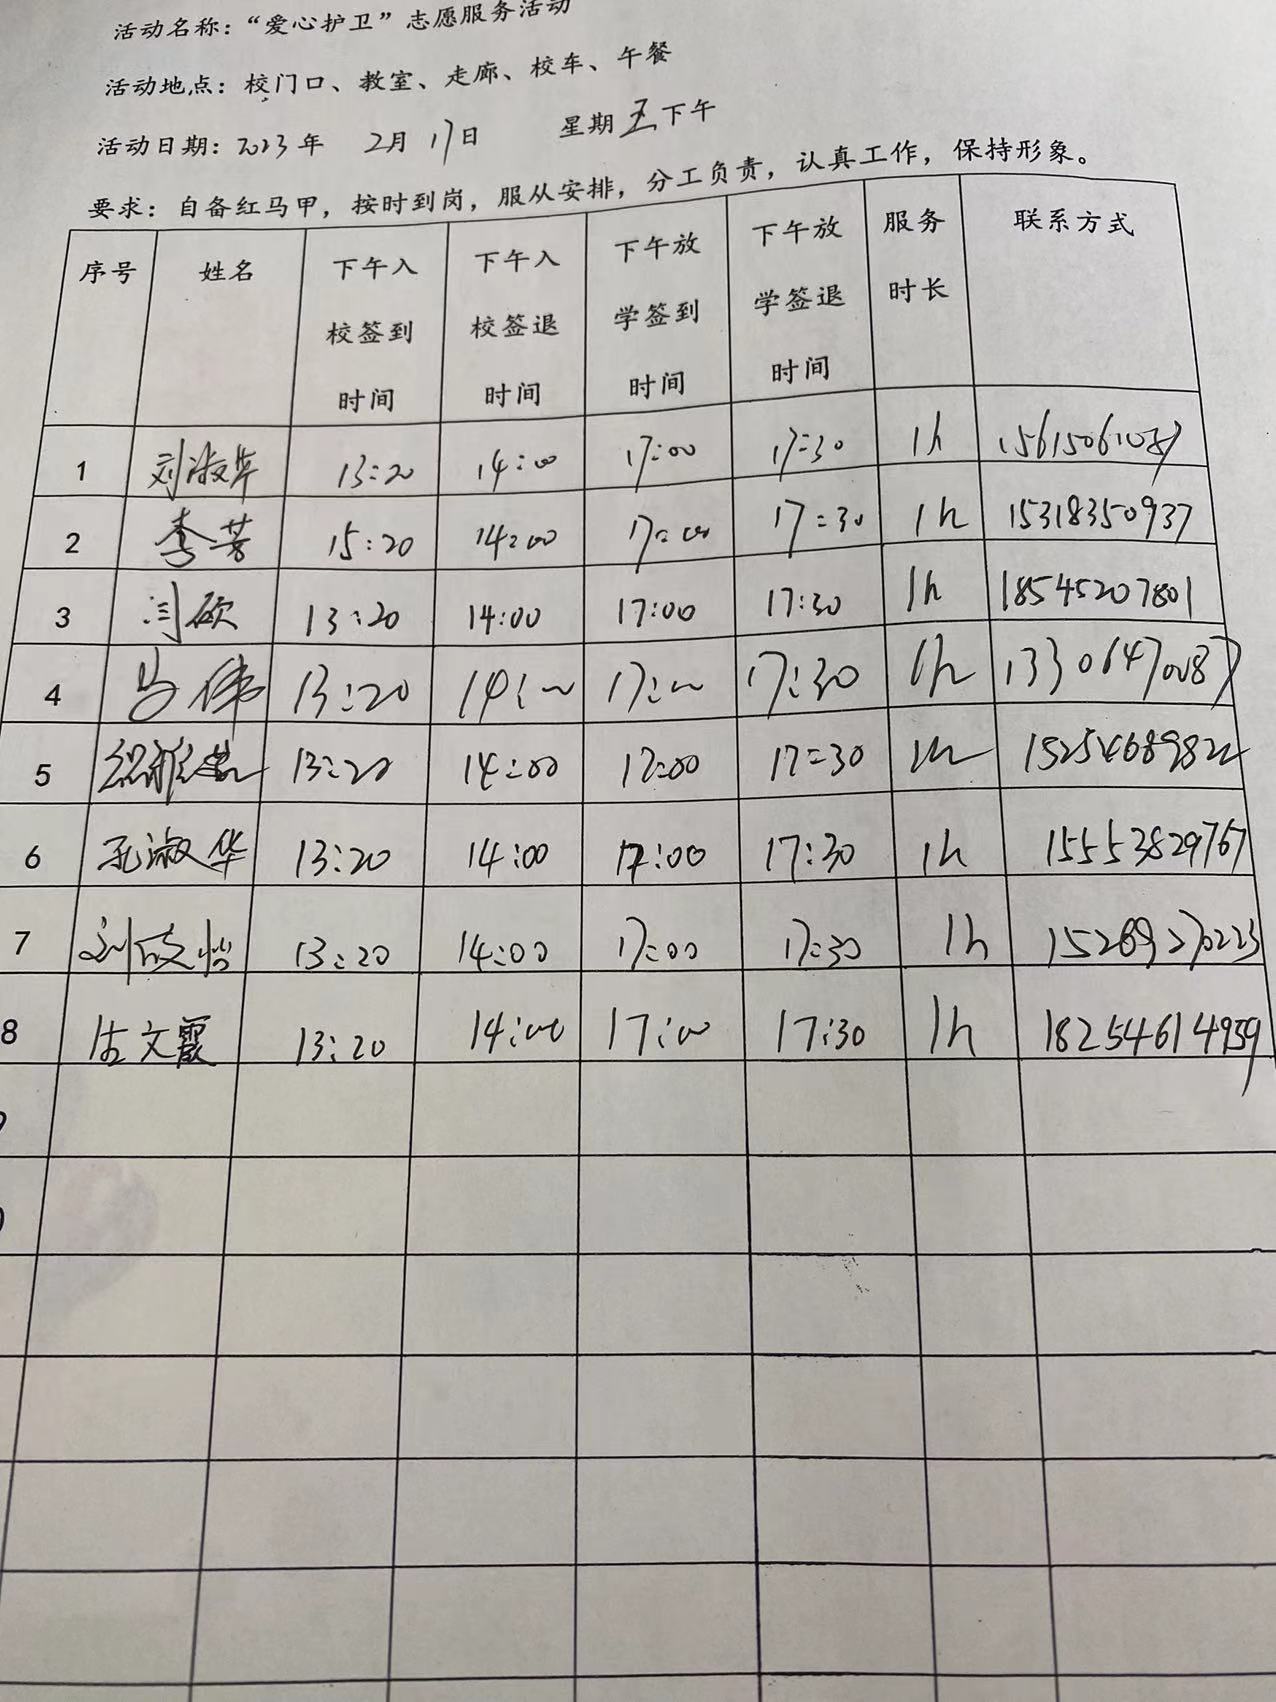 活动名称：“爱心护卫”志愿服务活动
活动地点：校门口、教室、走廊、校车、午餐
活动日期：2023年 2月17日 星期五下午
要求：自备红马甲，按时到岗，服从安排，分工负责，认真工作，保持形象。
序号 姓名 下午入校签到时间 下午入校签退时间 下午放学签到时间 下午放学签退时间 服务时长 联系方式
1 刘淑华 13:20 14:00 17:00 17:30 1h
2 李芳 15:20 14:00 17:00 17:30 1h 15318350937
3 闫硕 13:20 14:00 17:00 17:30 1h 18545207801
4 马伟 13:20 14:00 17:00 17:30 1h 13306470087
5 13:20 14:00 17:00 17:30 1h 15254689822
6 孔淑华 13:20 14:00 17:00 17:30 1h 15553829767
7 刘欣怡 13:20 14:00 17:00 17:30 1h 15269270223
8 文霞 13:20 14:00 17:00 17:30 1h 18254614959